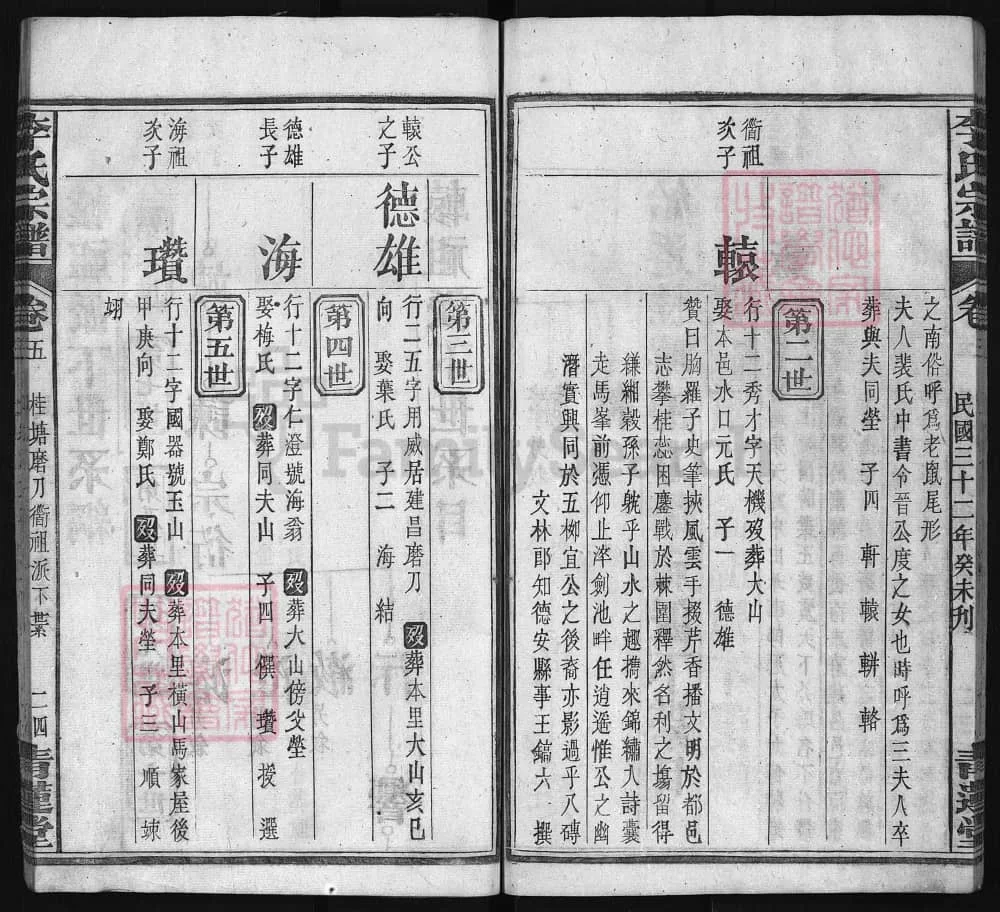 李氏宗譜
卷
民國三十二年癸未刋
青蓮堂
之南俗呼爲老鼠尾形
夫人裴氏中書令晉公度之女也時呼爲三夫人卒
葬與夫同塋 子四 軒 轅 輧 輅
第二世
衢祖次子
轅
行十二秀才字天機歿葬大山
娶本邑水口元氏 子一 德雄
贊曰胸羅子史筆挾風雲手掇芹香播文明於都邑
志攀桂蕊困鏖戰於棘圍釋然名利之塲留得
縑緗穀孫子躭乎山水之趣擕來錦繡入詩囊
走馬峯前憑仰止淬劍池畔任逍遥惟公之幽
潛實興同於五柳宜公之後裔亦影過乎八磚
文林郎知德安縣事王鎬六 撰
第三世
轅公之子
德雄
行二五字用威居建昌磨刀 歿葬本里大山亥巳
向 娶葉氏 子二 海 結
第四世
德雄長子
海
行十二字仁澄號海翁 歿葬大山傍父塋
娶梅氏 歿葬同夫山 子四 僎 瓚 援 選
第五世
海祖次子
瓚
行十二字國器號玉山 歿葬本里橫山馬家屋後
甲庚向 娶鄭氏 歿葬同夫塋 子三 順 竦
翊
李氏宗譜
卷五
桂塘磨刀衢祖派下業
二四
青蓮堂